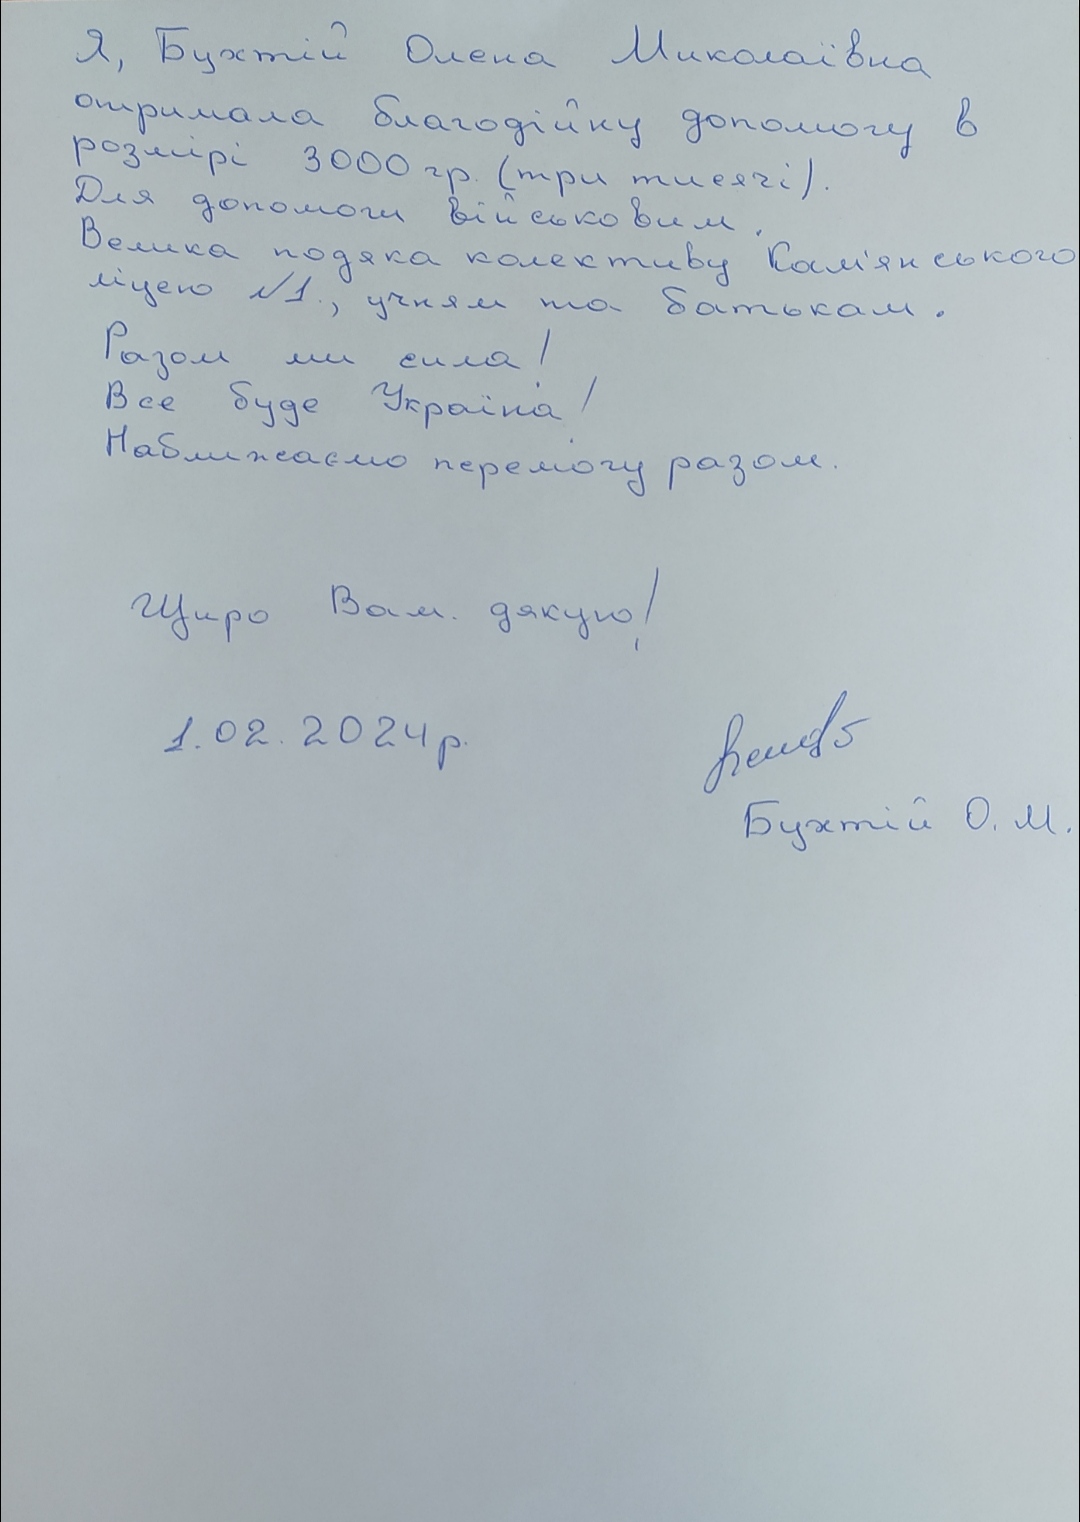 Я, Бухтій Олена Миколаївна
отримала благодійну допомогу в
розмірі 3000 гр. (три тисячі).
Для допомоги військовим.
Велика подяка колективу Кам'янського
ліцею №1., учням та батькам.
Разом ми сила!
Все буде Україна!
Наближаємо перемогу разом.
Щиро Вам. дякую!
1.02.2024р.
Бухтій О.М.